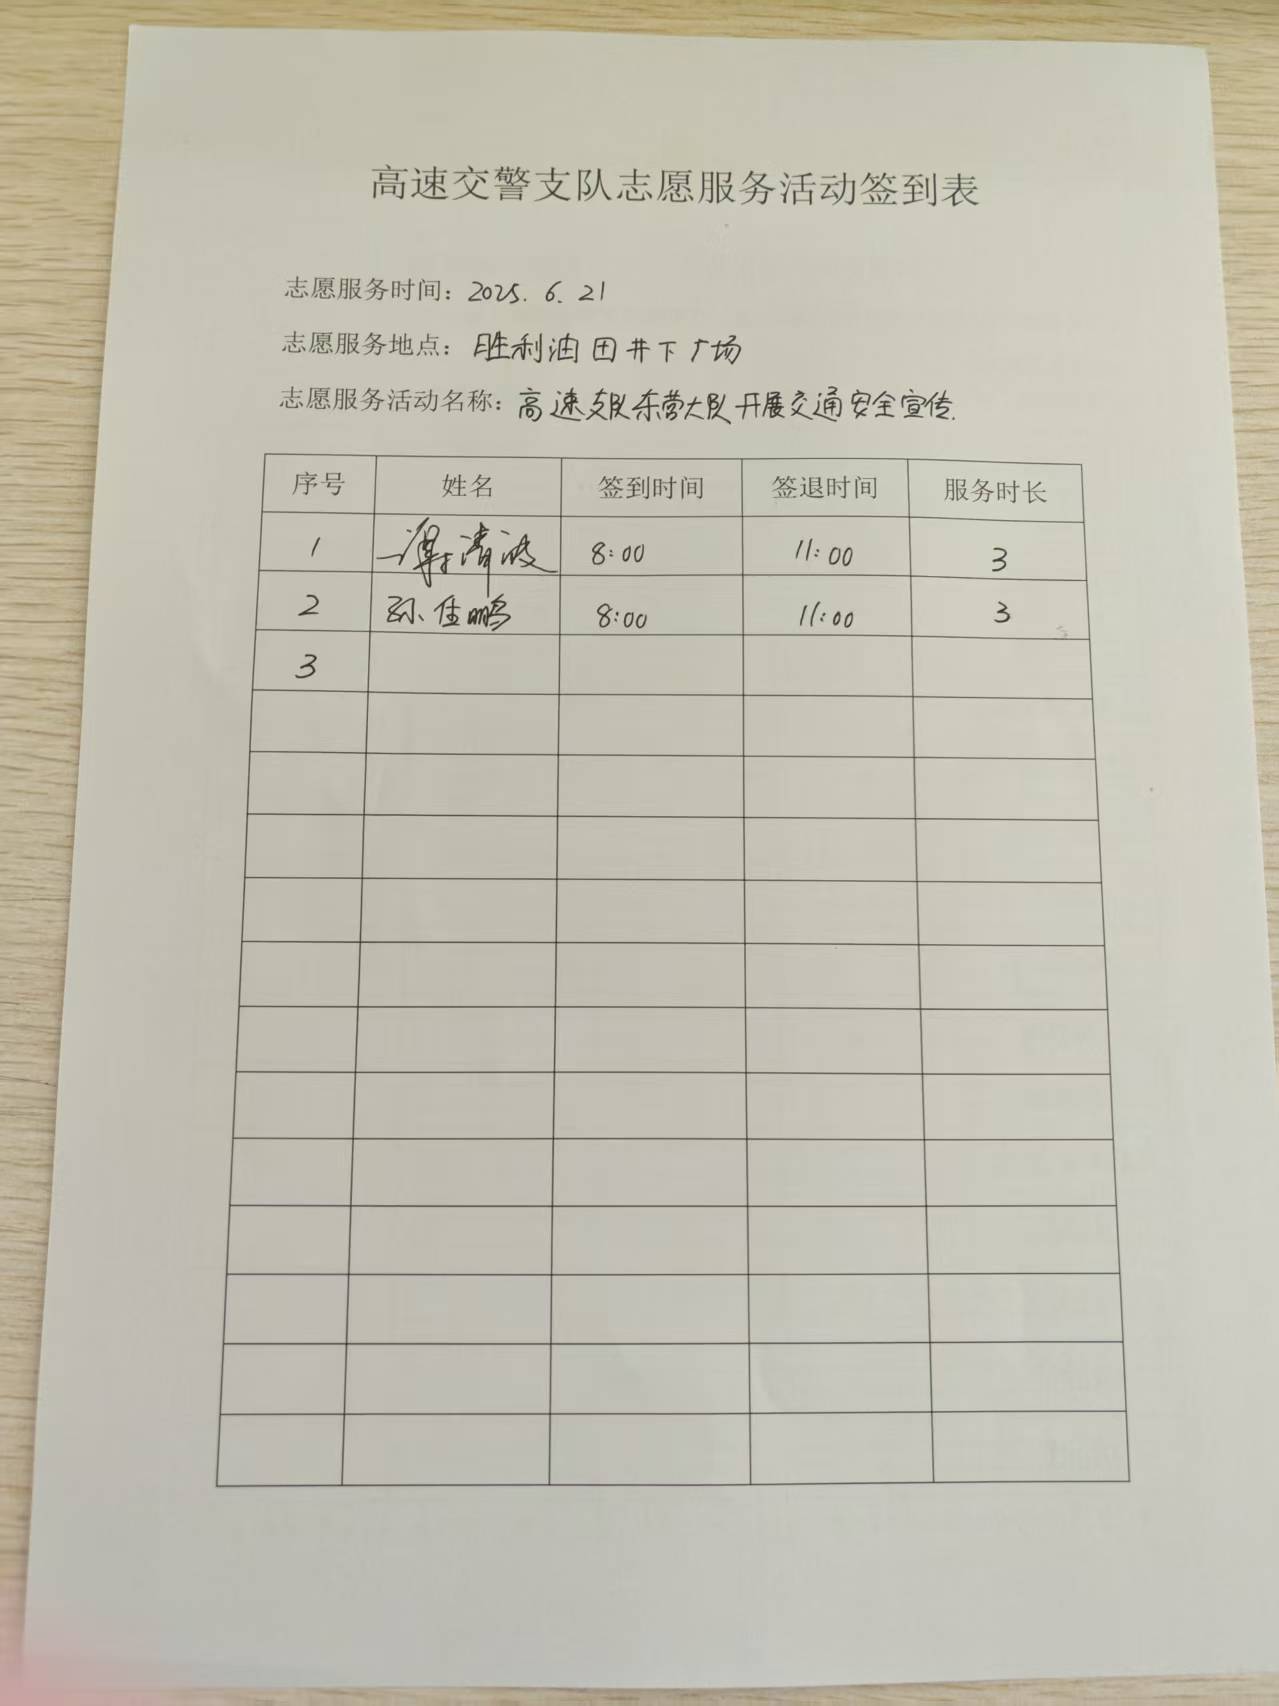 高速交警支队志愿服务活动签到表
志愿服务时间：2025.6.21
志愿服务地点：胜利油田井下广场
志愿服务活动名称：高速支队东营大队开展交通安全宣传.
序号 姓名 签到时间 签退时间 服务时长
1 谭清波 8:00 11:00 3
2 孙佳鹏 8:00 11:00 3
3